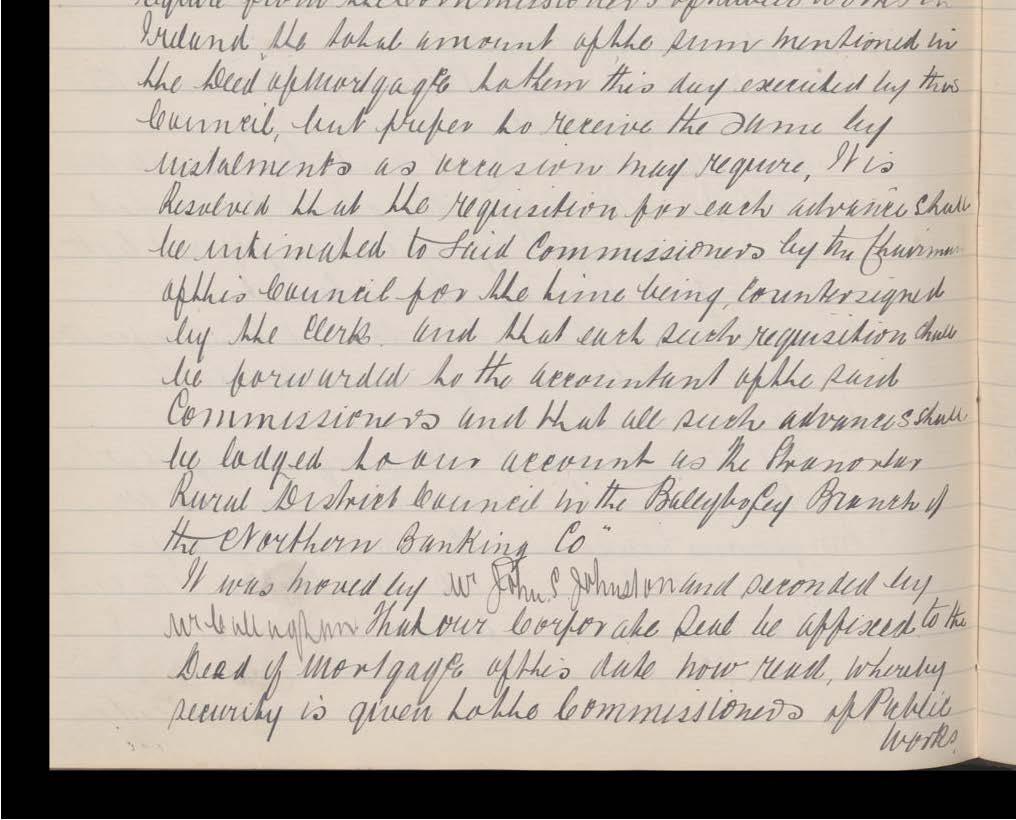 require from the Commissioners of Public Works in
Ireland the total amount of the sum mentioned in
the Deed of Mortgage to them this day executed by this
Council, but prefer to receive the same by
instalments as occasion may require, It is
Resolved that the requisition for each advance shall
be intimated to said Commissioners by the Chairman
of this Council for the time being, Countersigned
by the Clerk. and that each such requisition shall
be forwarded to the accountant of the said
Commissioners and that all such advances shall
be lodged to our account as the Stranorlar
Rural District Council in the Ballybofey Branch of
the Northern Banking Co"
It was moved by Mr John S Johnston and seconded by
Mr Callaghan That our Corporate Seal be affixed to the
Deed of Mortgage of this date now read, whereby
security is given to the Commissioners of Public
Works.